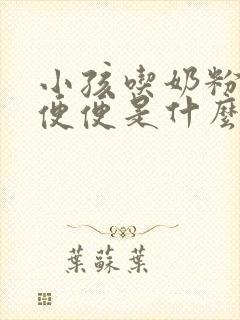 小孩喫奶粉
便便是什麼
葉蘇葉